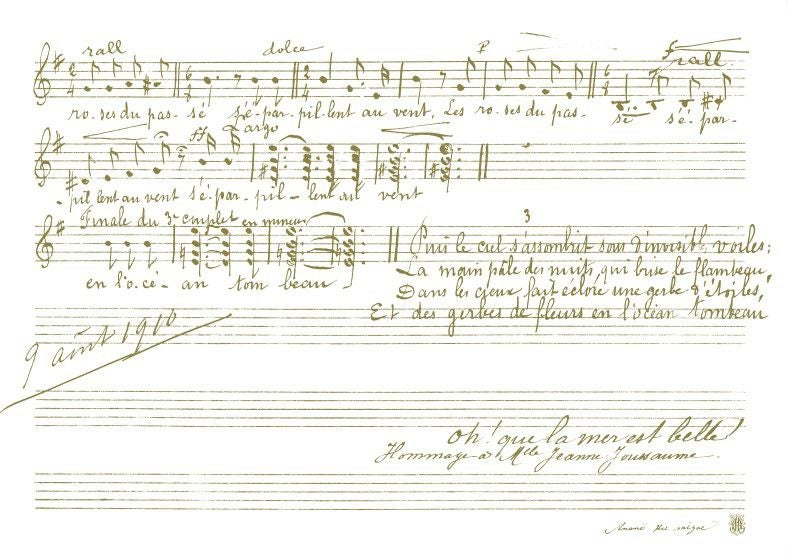 rall dolce P f rall.
ro-ses du pas-sé s'é-par-pil-lent au vent, Les ro-ses du pas-sé s'é-par-
ff Largo
pil lent au vent s'é-par-pil-lent au vent
Finale du 3e couplet en mineur
en l'o-cé-an tom beau
3
Puis le ciel s'assombrit sous d'invisibles voiles:
La main pâle des nuits, qui brise le flambeau,
Dans les cieux fait éclore une gerbe d'étoiles,
Et des gerbes de fleurs en l'océan tombeau
9 août 1910
oh! que la mer est belle!
Hommage à Mlle Jeanne Joussaume.